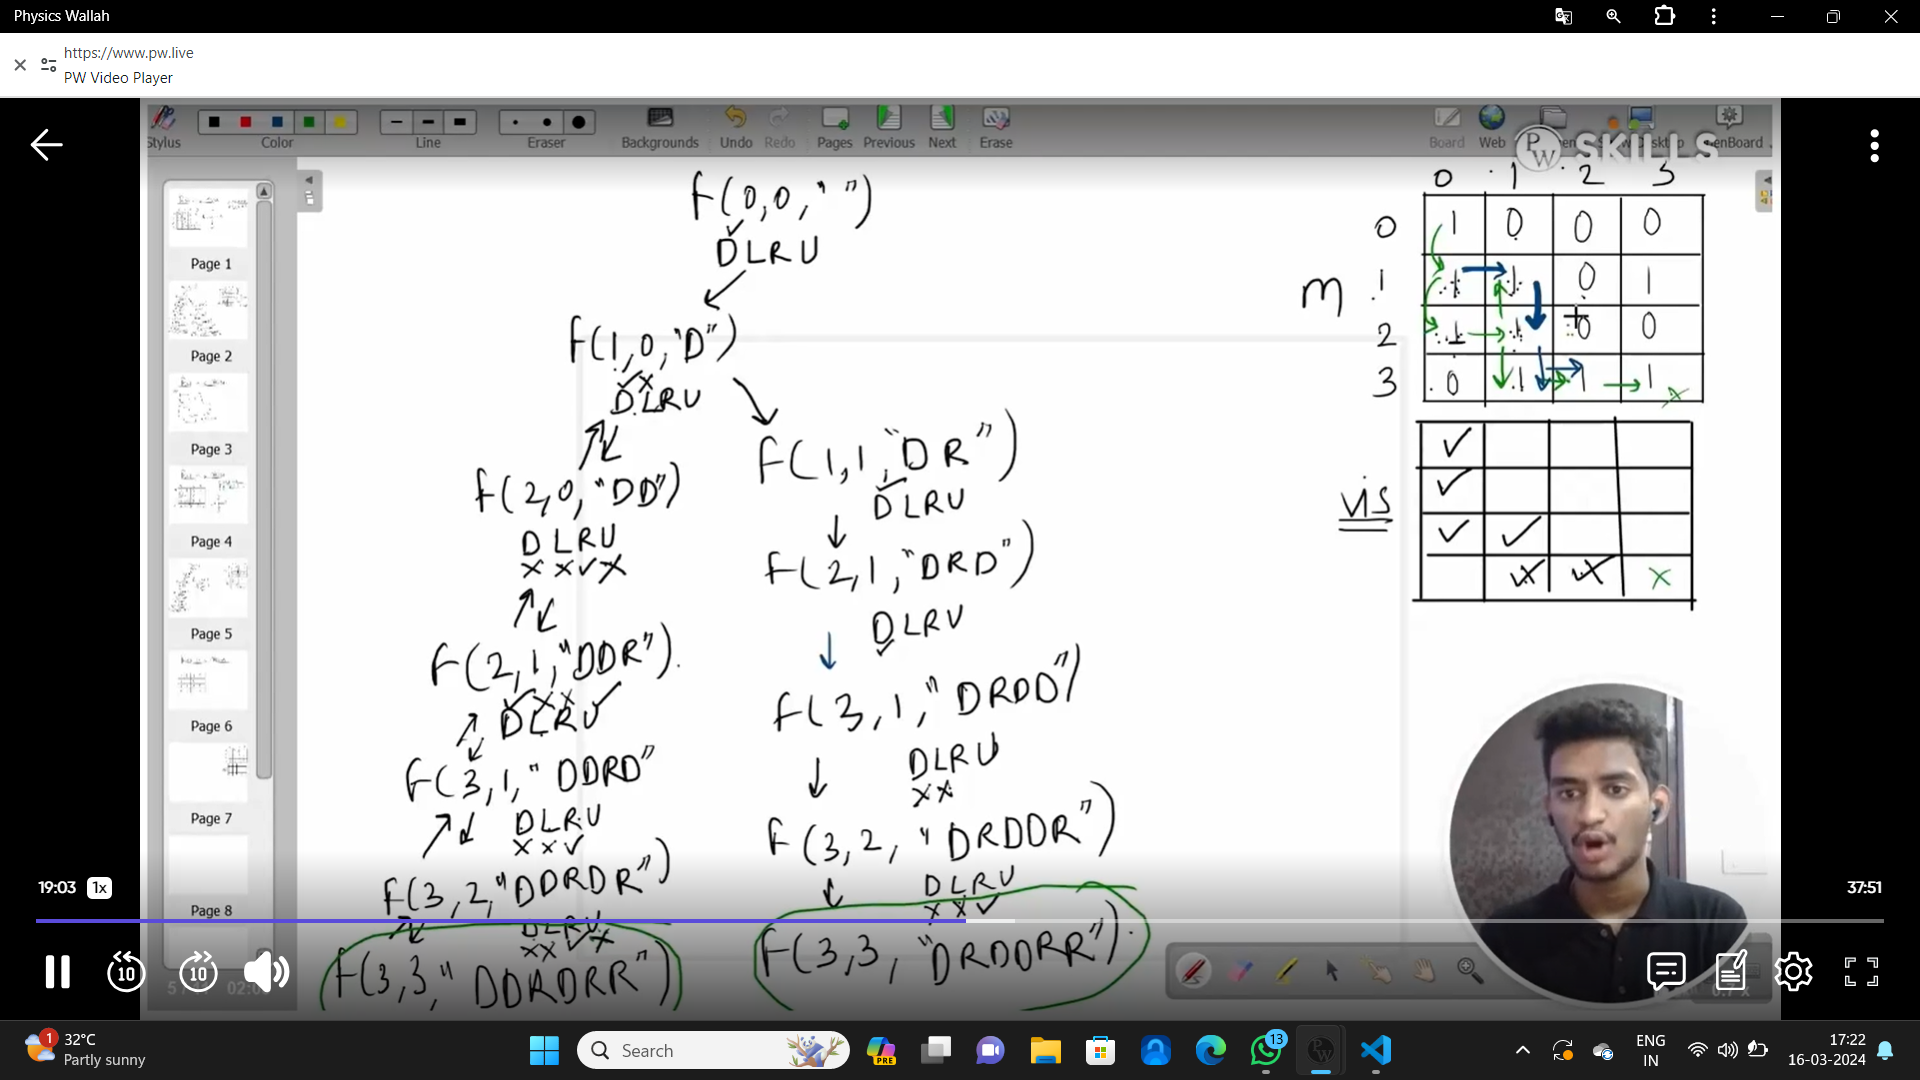 Physics Wallah
https://www.pw.live
PW Video Player
Stylus Color Line Eraser Backgrounds Undo Redo Pages Previous Next Erase Board Web Desktop OpenBoard
PW SKILLS
Page 1
Page 2
Page 3
Page 4
Page 5
Page 6
Page 7
Page 8
f(0,0," ")
DLRU
f(1,0,"D")
DLRU
f(2,0,"DD")
DLRU
x x ✓ x
f(2,1,"DDR")
✓ x x ✓
DLRU
f(3,1,"DDRD"
DLRU
x x ✓
f(3,2,"DDRDR")
DLRU
x x ✓ x
f(3,3,"DDRDRR")
f(1,1,"DR")
DLRU
f(2,1,"DRD")
DLRU
f(3,1,"DRDD")
DLRU
x x
f(3,2,"DRDDR")
DLRU
x x ✓
f(3,3,"DRDDRR")
0 1 2 3
0 1 0 0 0
m 1 1 1 0 1
2 1 1 0 0
3 0 1 1 1 x
vis
19:03 1x
37:51
10 10
32°C
Partly sunny
Search
PRE
13
ENG
IN
17:22
16-03-2024